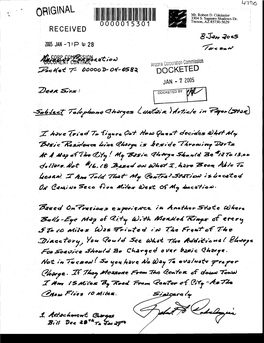 ORIGINAL
0000015301
Mr. Robert D. Cokinder
3304 S. Saguaro Shadows Dr.
Tucson, AZ 85730
RECEIVED
8-Jan 2005
2005 JAN -7 P 12: 28
Tucson
Arizona Corporation Commission
DOCUMENT CONTROL
Docket T- 00000D-04-0582
DOCKETED
JAN - 7 2005
DOCKETED BY
Dear Sirs:
Subject Telephone Charges (Article in Paper (Star)
I have Tried To Figure Out How Qwest decides What My
Basic Residence Line Charge is beside Throwing Darts
At A Map of The City! My Basic Charge Should Be
dollars Not $16.18 Based on What I have Been Able To
Learn. I Am Told That My Central Station is Located
On Camino Seco Five Miles West of My Location.
Based On Previous experience in Another State Where
Bulls-Eye Map of City With Marked Rings of every
5 To 10 miles Was Printed in The Front of The
Directory, You Could See What The Additional Charge
For Service Should Be Charged over Basic Charge.
Not in Tucson! So you have No Way To evaluate proper
Charge. If They Measure From The Center of down Town
I Am 15 Miles By Road From Center of City - As The
Crow Flies 10 Miles.
Sincerely
1 Attachment Charges
Bill Dec 28th To Jan 27th